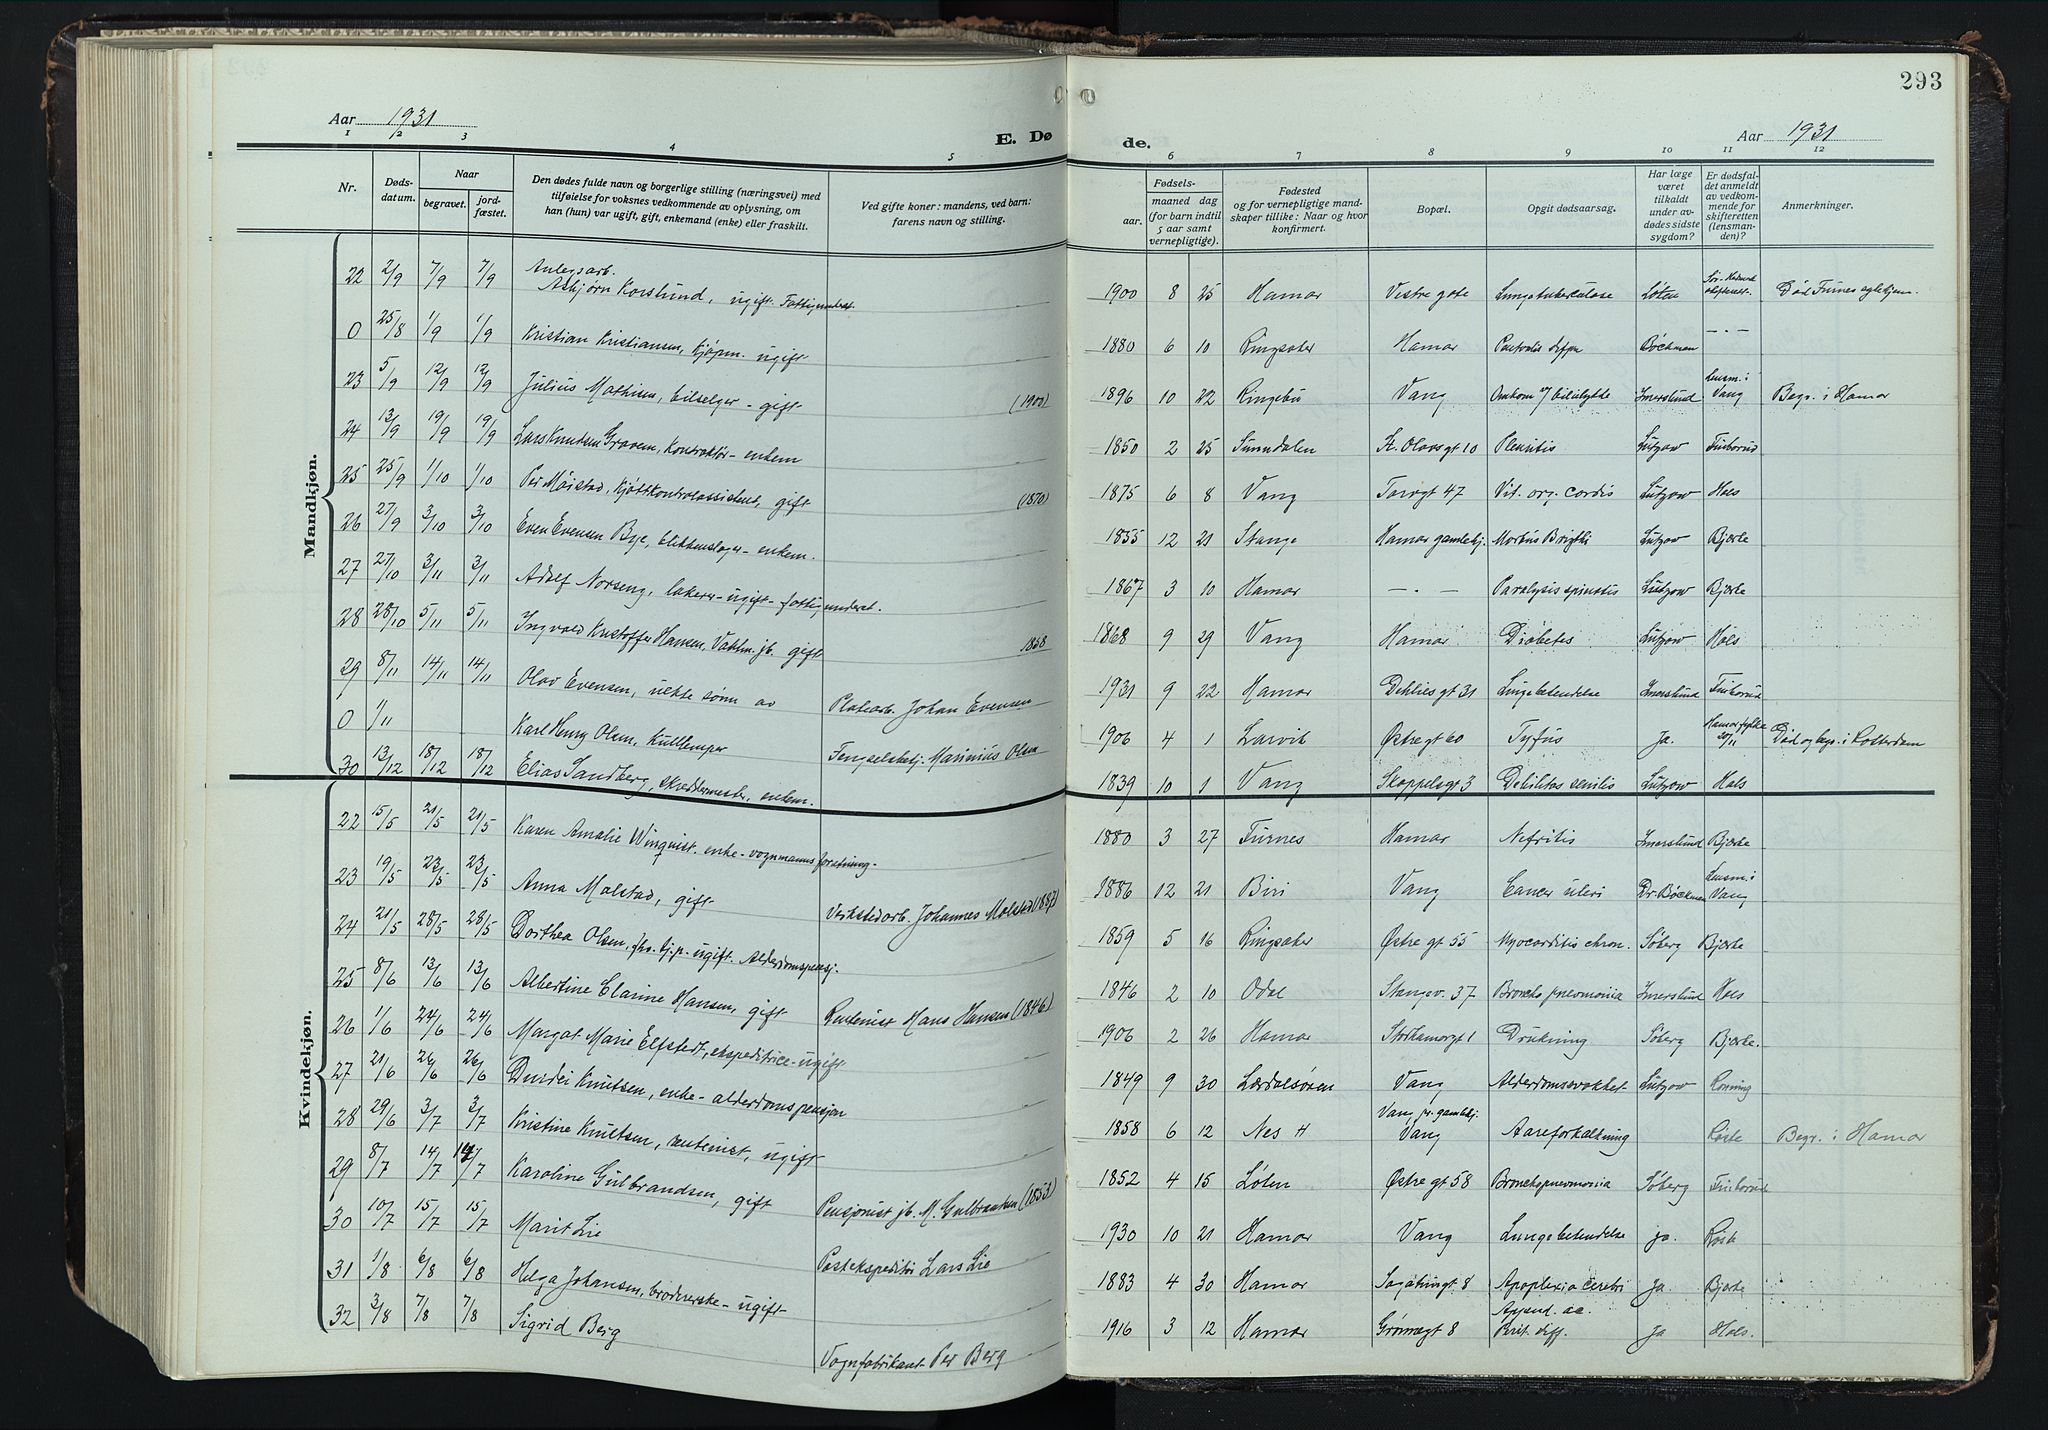 293
Aar 1931
E. Døde.
Aar 1931
1 2 3 4 5 6 7 8 9 10 11 12
Nr.
Døds-
datum.
Naar
begravet.
jord-
fæstet.
Den dødes fulde navn og borgerlige stilling (næringsvei) med
tilføielse for voksnes vedkommende av oplysning, om
han (hun) var ugift, gift, enkemand (enke) eller fraskilt.
Ved gifte koner: mandens, ved barn:
farens navn og stilling.
Fødsels-
aar.
maaned dag
(for barn indtil
5 aar samt
vernepligtige).
Fødested
og for vernepligtige mand-
skaper tillike: Naar og hvor
konfirmert.
Bopæl.
Opgit dødsaarsag.
Har læge
været
tilkaldt
under av-
dødes sidste
sygdom?
Er dødsfal-
det anmeldt
av vedkom-
mende for
skifteretten
(lensman-
den)?
Anmerkninger.
Mandkjøn.
22 2/9 7/9 7/9 Anlegsarb. Asbjørn Korslund, ugift. Fattigunderst. 1900 8 25 Hamar Vestre gate Lungetuberculose Løten Død Furnes sykehjem
0 25/8 1/9 1/9 Kristian Kristiansen, kjøpm. ugift 1880 6 10 Ringsaker Hamar Bøckman —·—
23 5/9 12/9 12/9 Julius Mathisen, bilselger - gift (1900) 1896 10 22 Ringebu Vang Omkom v/ bilulykke Imerslund Lensm. i Vang Begr. i Hamar
24 13/9 19/9 19/9 Lars Knutsen Gravem, Kontraktør - enkem 1850 2 25 Sunndalen St. Olavsgt 10 Pleuritis Lützow Finborud
25 25/9 1/10 1/10 Per Măistad, kjøttkontrolassistent, gift (1870) 1875 6 8 Vang Torvgt 47 Vit. org. cordis Lützow Hols
26 27/9 3/10 3/10 Even Evensen Bye, blikkenslager - enkem. 1855 12 21 Stange Hamar gamlehj. Morbus Brigthi Lützow Bjerke
27 27/10 3/11 3/11 Adolf Norseng, lakerer - ugift - fattigunderst. 1867 3 10 Hamar —·— Paralysis spinalis Lützow Bjerke
28 28/10 5/11 5/11 Ingvald Kristoffer Hansen, Vaktm. jb. gift 1868 1868 9 29 Vang Hamar Diabetes Lützow Hols
29 8/11 14/11 14/11 Olav Evensen, uekte sønn av Platearb. Johan Evensen 1931 9 22 Hamar Dehliesgt 31 Lungebetendelse Imerslund Finborud
0 1/11 Karl Henry Olsen, kullemper Fengselsbtj. Marinius Olsen 1906 4 1 Larvik Østregt 60 Tyfus Ja. Død og begr. i Rotterdam
30 13/12 18/12 18/12 Elias Sandberg, skreddermester, enkem. 1839 10 1 Vang Skappelsgt 3 Debilitas senilis Lützow Hols
Kvindekjøn.
22 15/5 21/5 21/5 Karen Amalie Winquist. enke - vognmannsforretning. 1880 3 27 Furnes Hamar Nefritis Imerslund Bjerke
23 19/5 23/5 23/5 Anna Molstad, gift Verkstedarb. Johannes Molstad (1887) 1886 12 21 Biri Vang Cancer uteri Dr. Bøckman Lensm. i Vang
24 21/5 28/5 28/5 Dorthea Olsen, fhv. tj.p. - ugift. Alderdomspensj. 1859 5 16 Ringsaker Østre gt 55 Myocarditis chron. Søberg Bjerke
25 8/6 13/6 13/6 Albertine Clarine Hansen, gift Rentenist Hans Hansen (1846) 1846 2 10 Odal Stangev. 37 Broncho pnevmonia Imerslund Hols
26 1/6 24/6 24/6 Margot Marie Elfstedt, ekspeditrice - ugift 1906 2 26 Hamar Storhamargt 1 Drukning Søberg Bjerke.
27 21/6 26/6 26/6 Durdei Knutsen, enke - alderdomspensjon 1849 9 30 Lærdalsøren Vang Alderdomssvakhet Lützow Rønning
28 29/6 3/7 3/7 Kristine Knutsen, rentenist, ugift 1858 6 12 Nes H Vang pr. gamlehj. Vang Aareforkalkning Røste Begr. i Hamar
29 8/7 14/7 14/7 Karoline Gulbrandsen, gift Pensjonist jb. M. Gulbrandsen (1853) 1852 4 15 Løten Østre gt 58 Bronchopnevmonia Søberg Finborud
30 10/7 15/7 15/7 Marit Lie Postekspeditør Lars Lie 1930 10 21 Hamar Vang Lungebetendelse ja. Røste
31 1/8 6/8 6/8 Helga Johansen, brodererske - ugift 1883 4 30 Hamar Sagatungt 8 Apoplexia cerebri Ja. Bjerke
32 3/8 7/8 7/8 Sigrid Berg Vognfabrikant Per Berg 1916 3 12 Hamar Grønnegt 8 Append. ac. Perit. diff. Ja Hols.